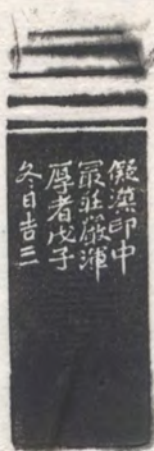 儗漢印中
冣莊嚴渾
厚者戊子
冬日吉三